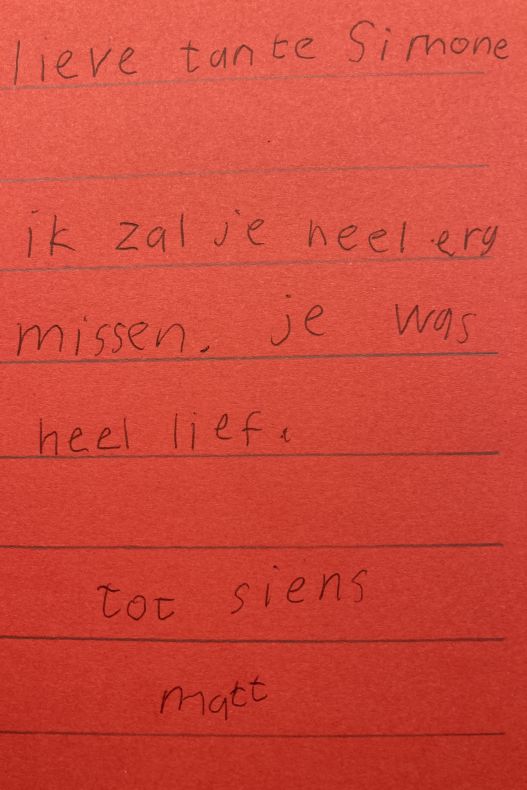 lieve tante Simone
ik zal je heel erg
missen. je was
heel lief.
tot siens
matt